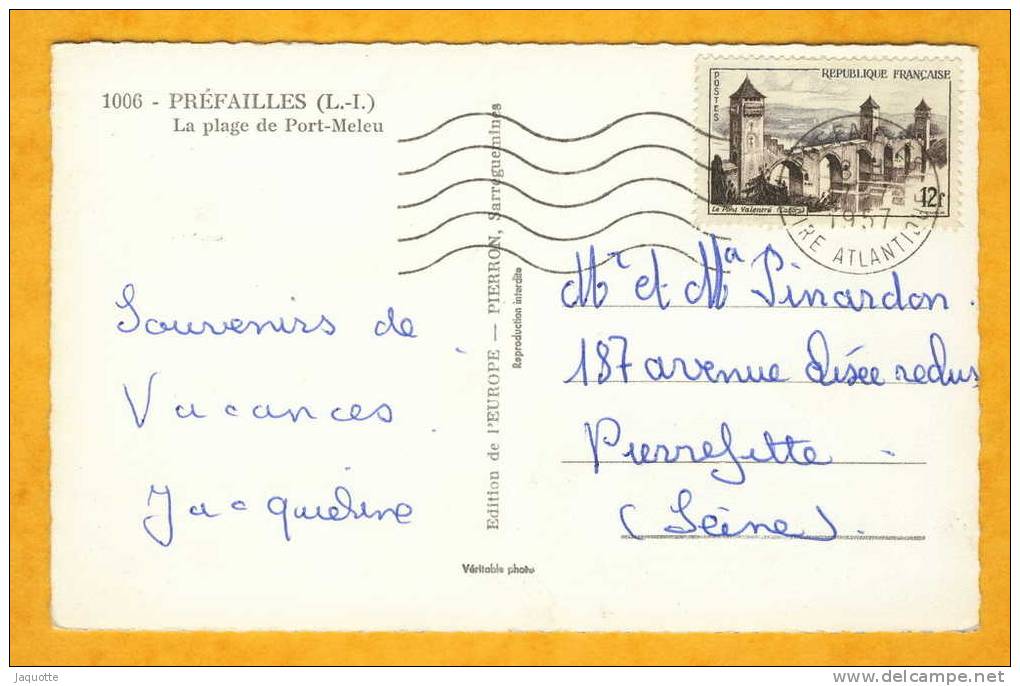 1006 - PRÉFAILLES (L.-I.)
La plage de Port-Meleu
Souvenirs de
Vacances
Jacqueline
Edition de l'EUROPE — PIERRON, Sarreguemines
Reproduction interdite
Véritable photo
POSTES
REPUBLIQUE FRANÇAISE
12f
Le Pont Valentré (Cahors)
1957
IRE ATLANTIQU
Mr et Ma Pinardon.
187 avenue Elisée reclus
Pierrefitte
(Seine).
Jaquotte
www.delcampe.net